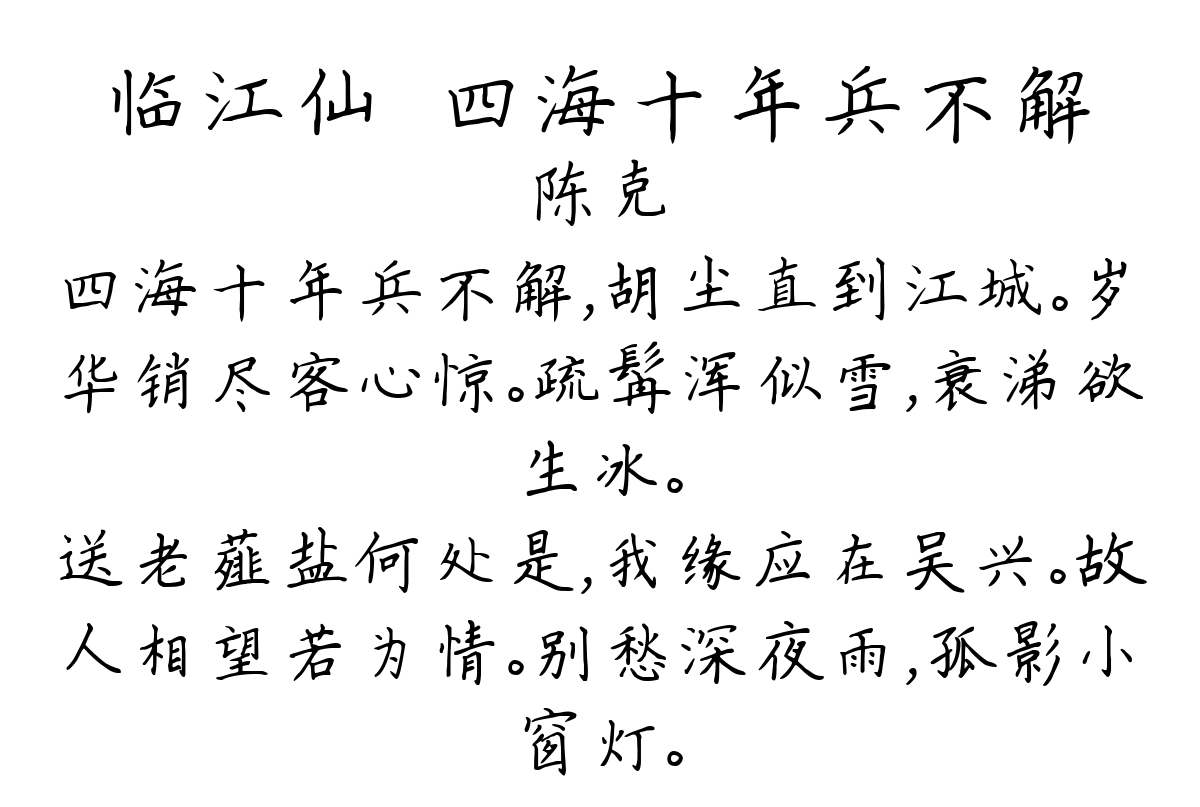 临江仙 四海十年兵不解
陈克
四海十年兵不解,胡尘直到江城。岁
华销尽客心惊。疏髯浑似雪,衰涕欲
生冰。
送老薤盐何处是,我缘应在吴兴。故
人相望若为情。别愁深夜雨,孤影小
窗灯。